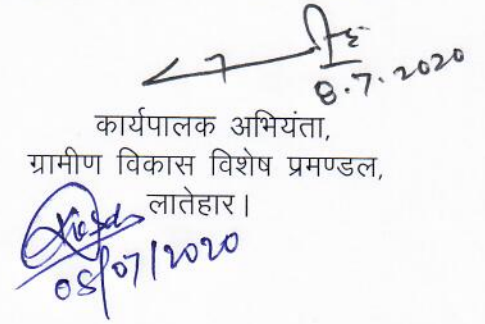 8.7.2020
कार्यपालक अभियंता,
ग्रामीण विकास विशेष प्रमण्डल,
लातेहार।
08/07/2020